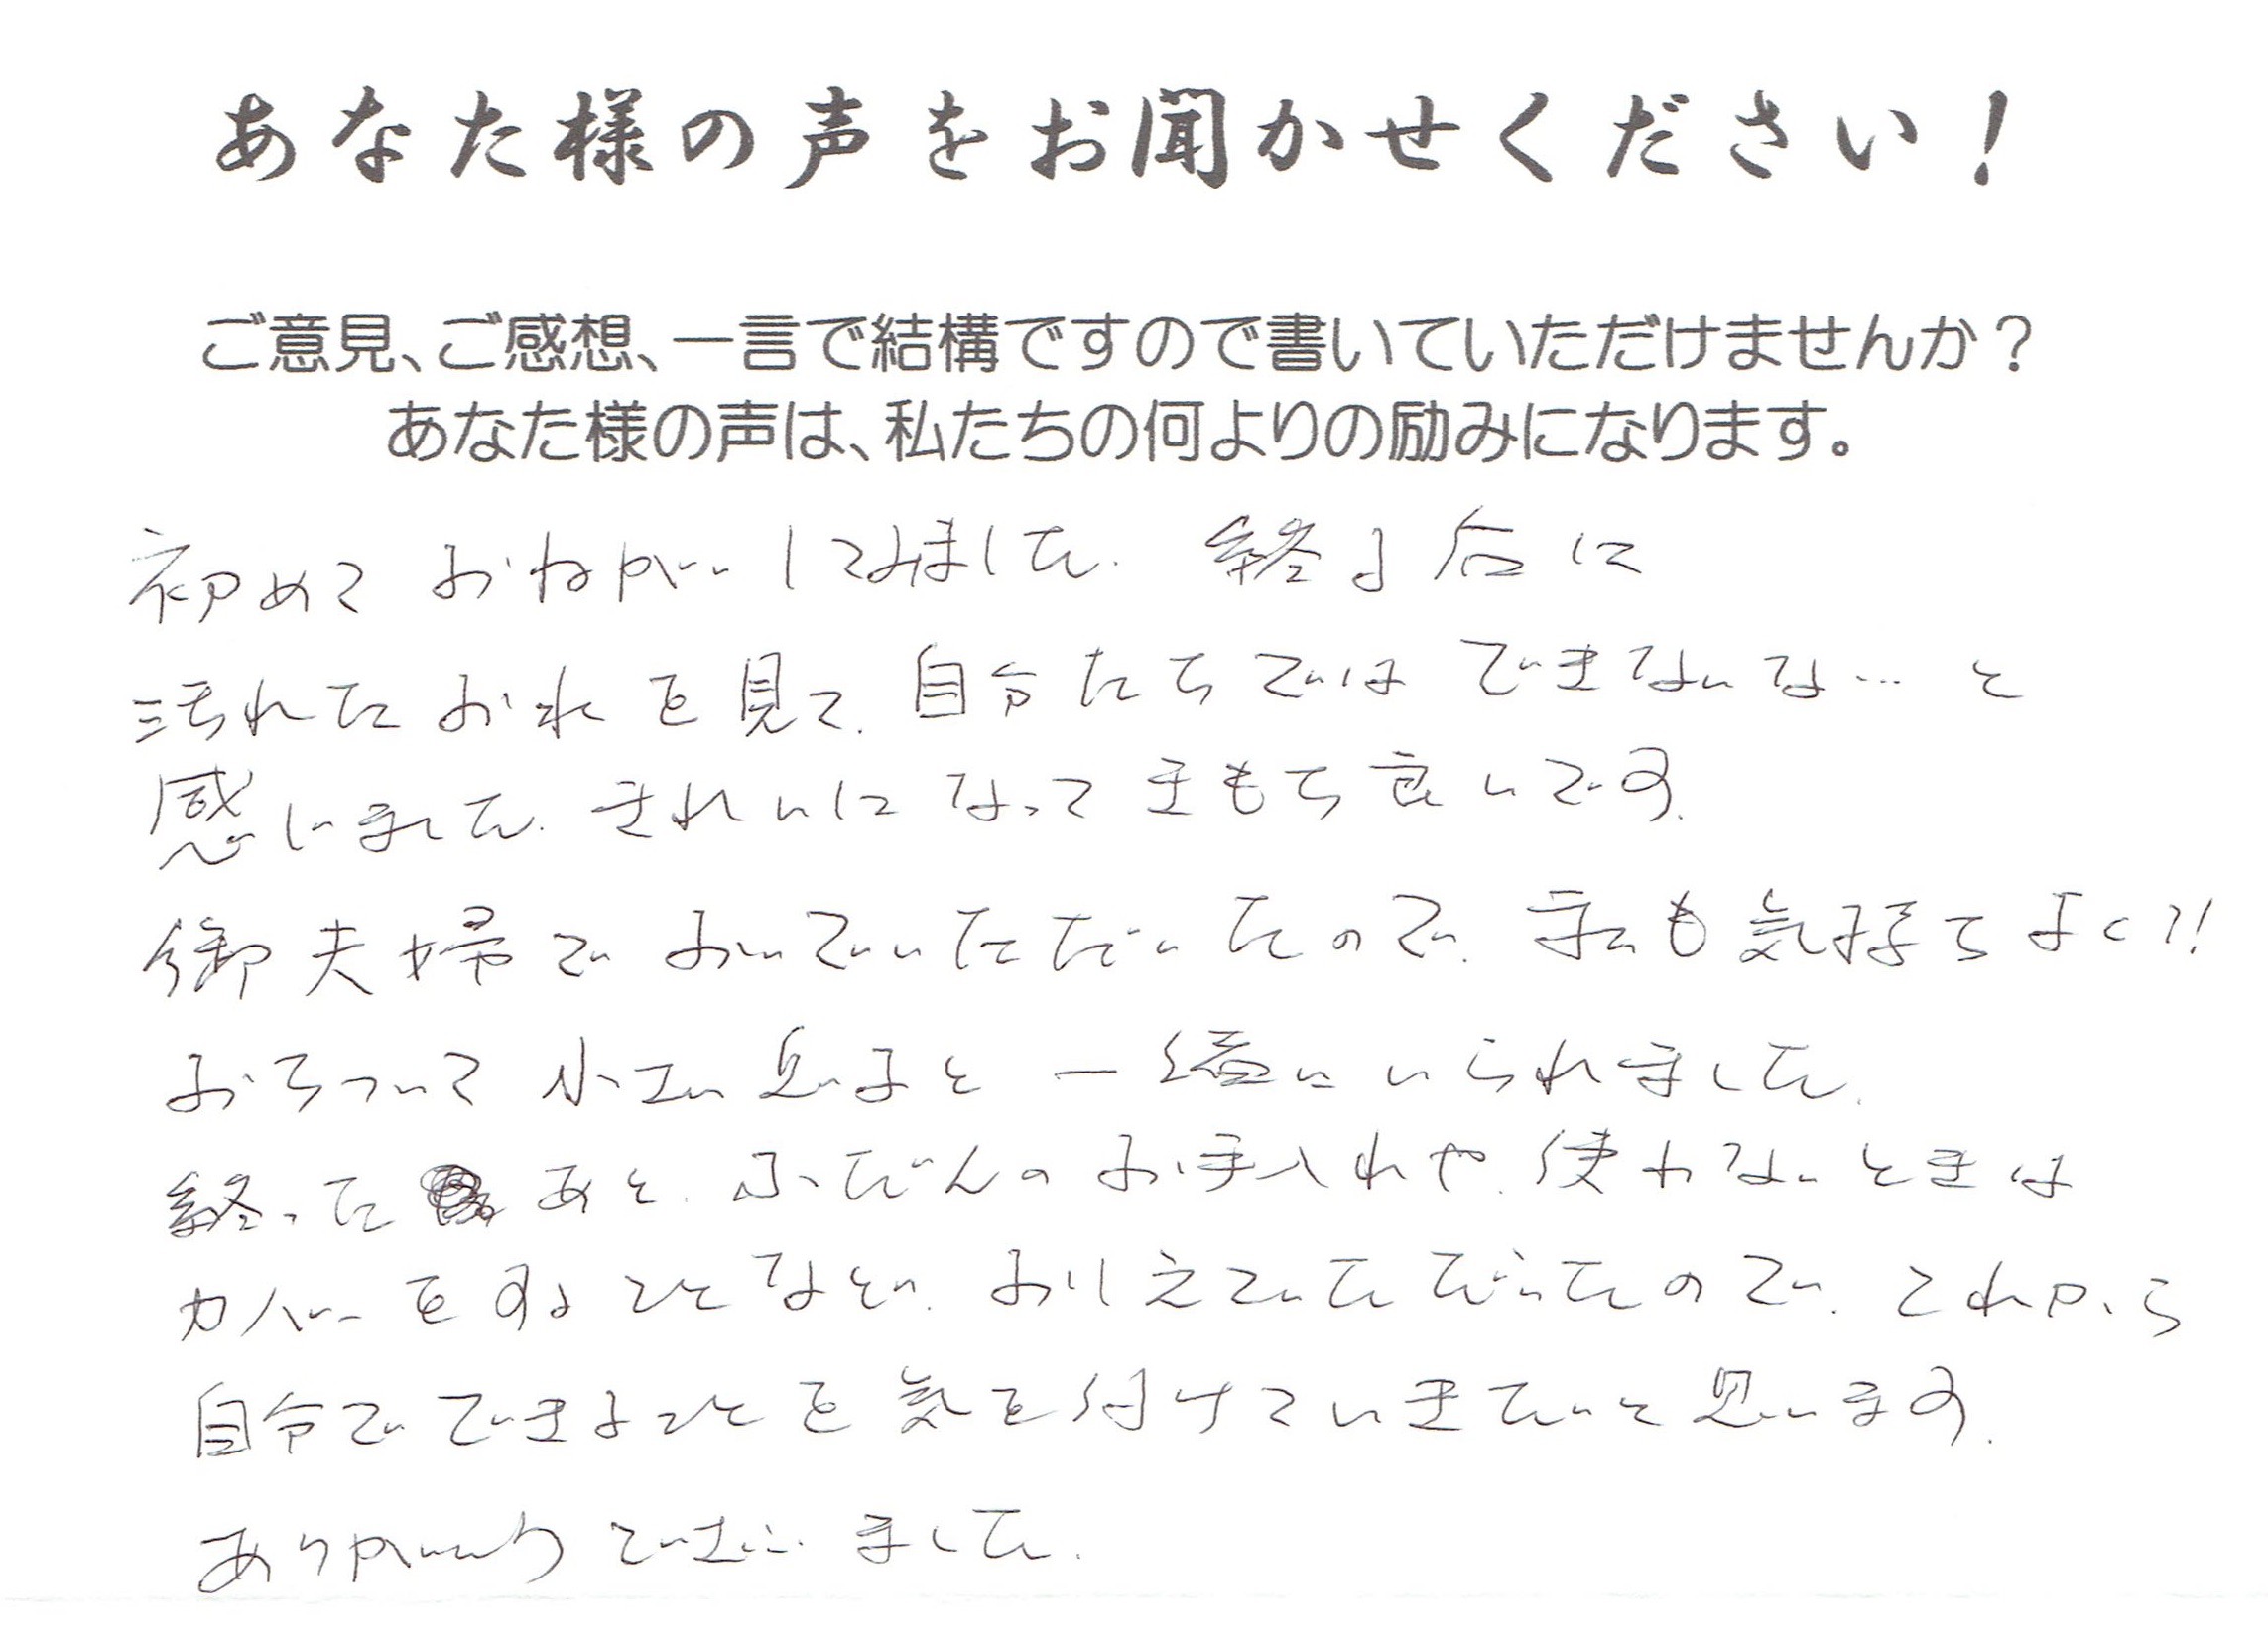 あなた様の声をお聞かせください！
ご意見、ご感想、一言で結構ですので書いていただけませんか？
あなた様の声は、私たちの何よりの励みになります。
初めて おねがいしてみました. 終る 台に
汚れた お水を見て. 自分たちでは できないな… と
感じました. きれいになって きもち良いです.
御夫婦で おいでいただいたので. 私も気持ちよく!!
おちついて 小さい息子と 一緒にいられました.
終った あと. ふだんの お手入れや. 使わないときは
カバーをすることなど. おしえていただいたので. これから
自分で できることを 気を付けていきたいと思います.
ありがとう ございました.